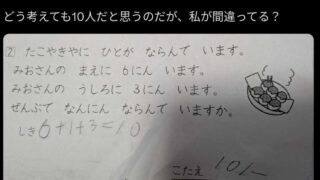 どう考えても10人だと思うのだが、私が間違ってる？
② たこやきやに ひとが ならんで います。
みおさんの まえに 6にん います。
みおさんの うしろに 3にん います。
ぜんぶで なんにん ならんで いますか。
しき 6+1+3=10
こたえ 10人